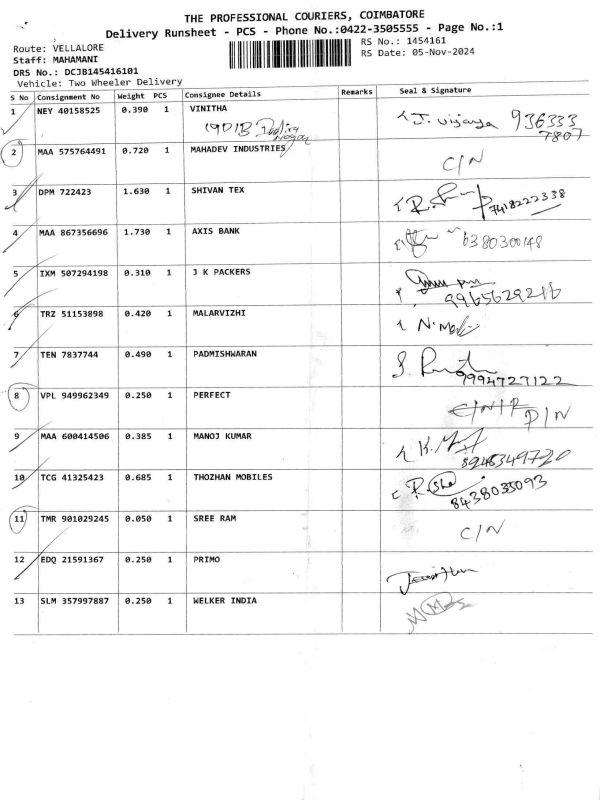 THE PROFESSIONAL COURIERS, COIMBATORE
Delivery Runsheet - PCS - Phone No.:0422-3505555 - Page No.:1
Route: VELLALORE
RS No.: 1454161
Staff: MAHAMANI
RS Date: 05-Nov-2024
DRS No.: DCJB145416101
Vehicle: Two Wheeler Delivery
S No Consignment No Weight PCS Consignee Details Remarks Seal & Signature
1 NEY 40158525 0.390 1 VINITHA J. vijaya 936333
190 1B Nagar 7807
2 MAA 575764491 0.720 1 MAHADEV INDUSTRIES C/N
3 DPM 722423 1.630 1 SHIVAN TEX 7418222338
4 MAA 867356696 1.730 1 AXIS BANK 6380300148
5 IXM 507294198 0.310 1 J K PACKERS
9965629216
6 TRZ 51153898 0.420 1 MALARVIZHI
7 TEN 7837744 0.490 1 PADMISHWARAN
9994727122
8 VPL 949962349 0.250 1 PERFECT D/N
9 MAA 600414506 0.385 1 MANOJ KUMAR
10 TCG 41325423 0.685 1 THOZHAN MOBILES
8438035093
11 TMR 901029245 0.050 1 SREE RAM C/N
12 EDQ 21591367 0.250 1 PRIMO
13 SLM 357997887 0.250 1 WELKER INDIA